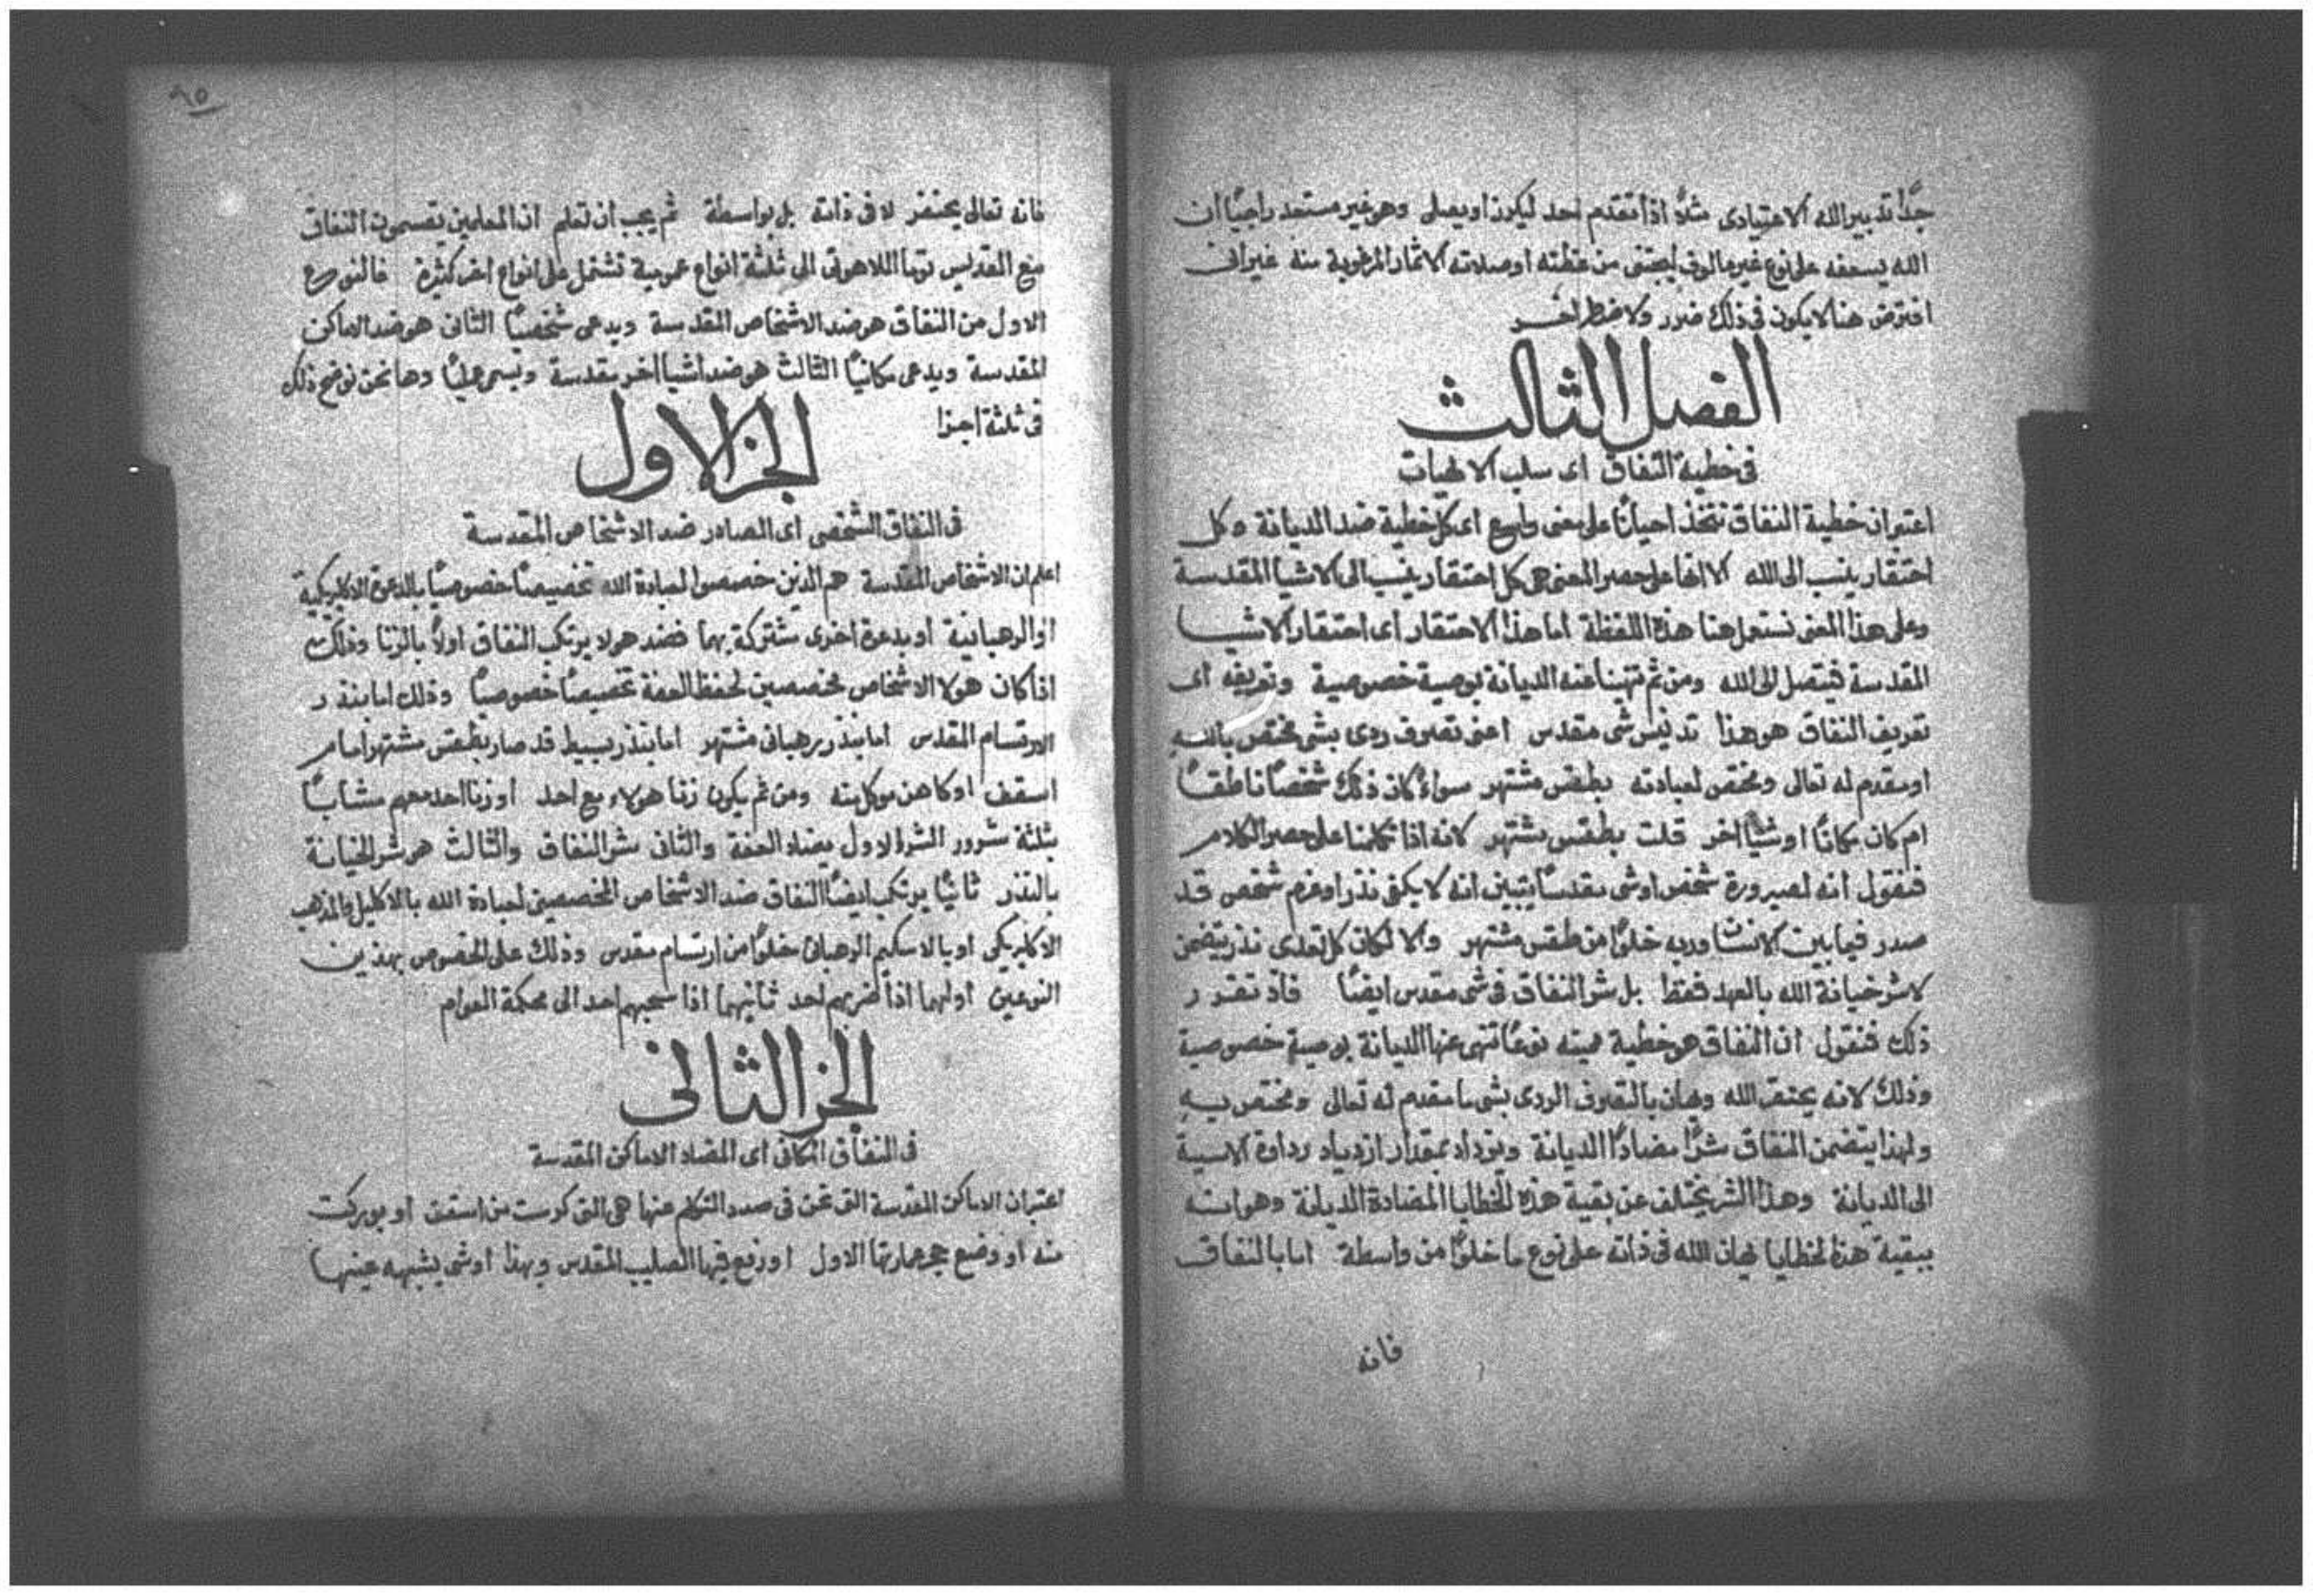 جدًا تدبير الله الاعتيادى مثلاً اذا تقدم احد ليكرز او يصلى وهو غير مستعد راجيًا ان
الله يسعفه على نوع غير مالوف ليجتنى من عظته او صلاته الاثمار المرغوبة منه غير انى
افترض هنا لا يكون فى ذلك ضرر ولا خطر اخر
الفصل الثالث
فى خطية النفاق اى سلب الالهيات
اعتبر ان خطية النفاق تتخذ احيانًا على معنى واسع اى كل خطية ضد الديانة وكل
احتقار ينسب الى الله الا انها على حصر المعنى هى كل احتقار ينسب الى الاشيا المقدسة
وعلى هذا المعنى نستعمل هنا هذه اللفظة اما هذا الاحتقار اى احتقار الاشيا
المقدسة فيتصل الى الله ومن ثم تنهينا عنه الديانة بوصية خصوصية وتعريفه اى
تعريف النفاق هو هذا تدنيس شى مقدس اعنى تصرف ردى بشى مختص بالله
او مقدم له تعالى ومختص لعبادته بطقس مشتهر سواء كان ذلك شخصًا ناطقًا
ام كان مكانًا او شيًا اخر قلت بطقس مشتهر لانه اذا تكلمنا على حصر الكلام
فنقول انه لصيرورة شخص او شى مقدسًا يتبين انه لا يكفى نذر او عزم شخص قد
صدر فيما بين الانسان وربه خلوًا من طقس مشتهر والا لكان كل تعدى نذر يتضمن
لا شر خيانة الله بالعهد فقط بل شر النفاق فى شى مقدس ايضًا فاذ تقرر
ذلك فنقول ان النفاق هو خطية مميته نوعًا تنهى عنها الديانة بوصية خصوصية
وذلك لانه يحتقر الله ويهان بالتصرف الردى بشى ما مقدم له تعالى ومختص به
ولهذا يتضمن النفاق شرًا مضادًا الديانة ويزداد بمقدار ازدياد رداوة الاسية
الى الديانة وهذا الشر يختلف عن بقية هذه الخطايا المضادة الديانة وهو انه
ببقية هذه الخطايا يهان الله فى ذاته على نوع ما خلوًا من واسطة اما بالنفاق
فانه
٩٥
فانه تعالى يحتقر لا فى ذاته بل بواسطة ثم يجب ان تعلم ان المعلمين يقسمون النفاق
مع القديس توما اللاهوتى الى ثلثة انواع عمومية تشتمل على انواع اخر كثيرة فالنوع
الاول من النفاق هو ضد الاشخاص المقدسة ويدعى شخصيًا الثانى هو ضد الاماكن
المقدسة ويدعى مكانيًا الثالث هو ضد اشيا اخر مقدسة ويسمى عليًا وها نحن نوضح ذلك
فى ثلثة اجزا
الجز الاول
فى النفاق الشخصى اى الصادر ضد الاشخاص المقدسة
اعلم ان الاشخاص المقدسة هم الذين خصصوا لعبادة الله تخصيصًا خصوصيًا بالدعوة الاكليريكية
او الرهبانية او بدعوة اخرى مشتركة بهما فضد هولا يرتكب النفاق اولاً بالزنا وذلك
اذا كان هولا الاشخاص مخصصين لحفظ العفة تخصيصًا خصوصيًا وذلك اما بنذر
الارتسام المقدس اما بنذر رهبانى مشتهر اما بنذر بسيط قد صار بطقس مشتهر امام
اسقف او كاهن موكل منه ومن ثم يكون زنا هولاء مع احد او زنا احد معهم مشابًا
بثلثة شرور الشر الاول مضاد العفة والثانى شر النفاق والثالث هو شر الخيانة
بالنذر ثانيًا يرتكب ايضًا النفاق ضد الاشخاص المخصصين لعبادة الله بالاكليل والمذهب
الاكليريكى او بالاسكيم الرهبانى خلوًا من ارتسام مقدس وذلك على الخصوص بهذين
النوعين اولهما اذا ضربهم احد ثانيهما اذا سحبهم احد الى محكمة العوام
الجز الثانى
فى النفاق المكانى اى المضاد الاماكن المقدسة
اعتبر ان الاماكن المقدسة التى نحن فى صدد التكلم عنها هى التى كرست من اسقف او بوركت
منه او وضع حجر عمارتها الاول او رفع فيها الصليب المقدس وبهذا او شى يشبهه عينها